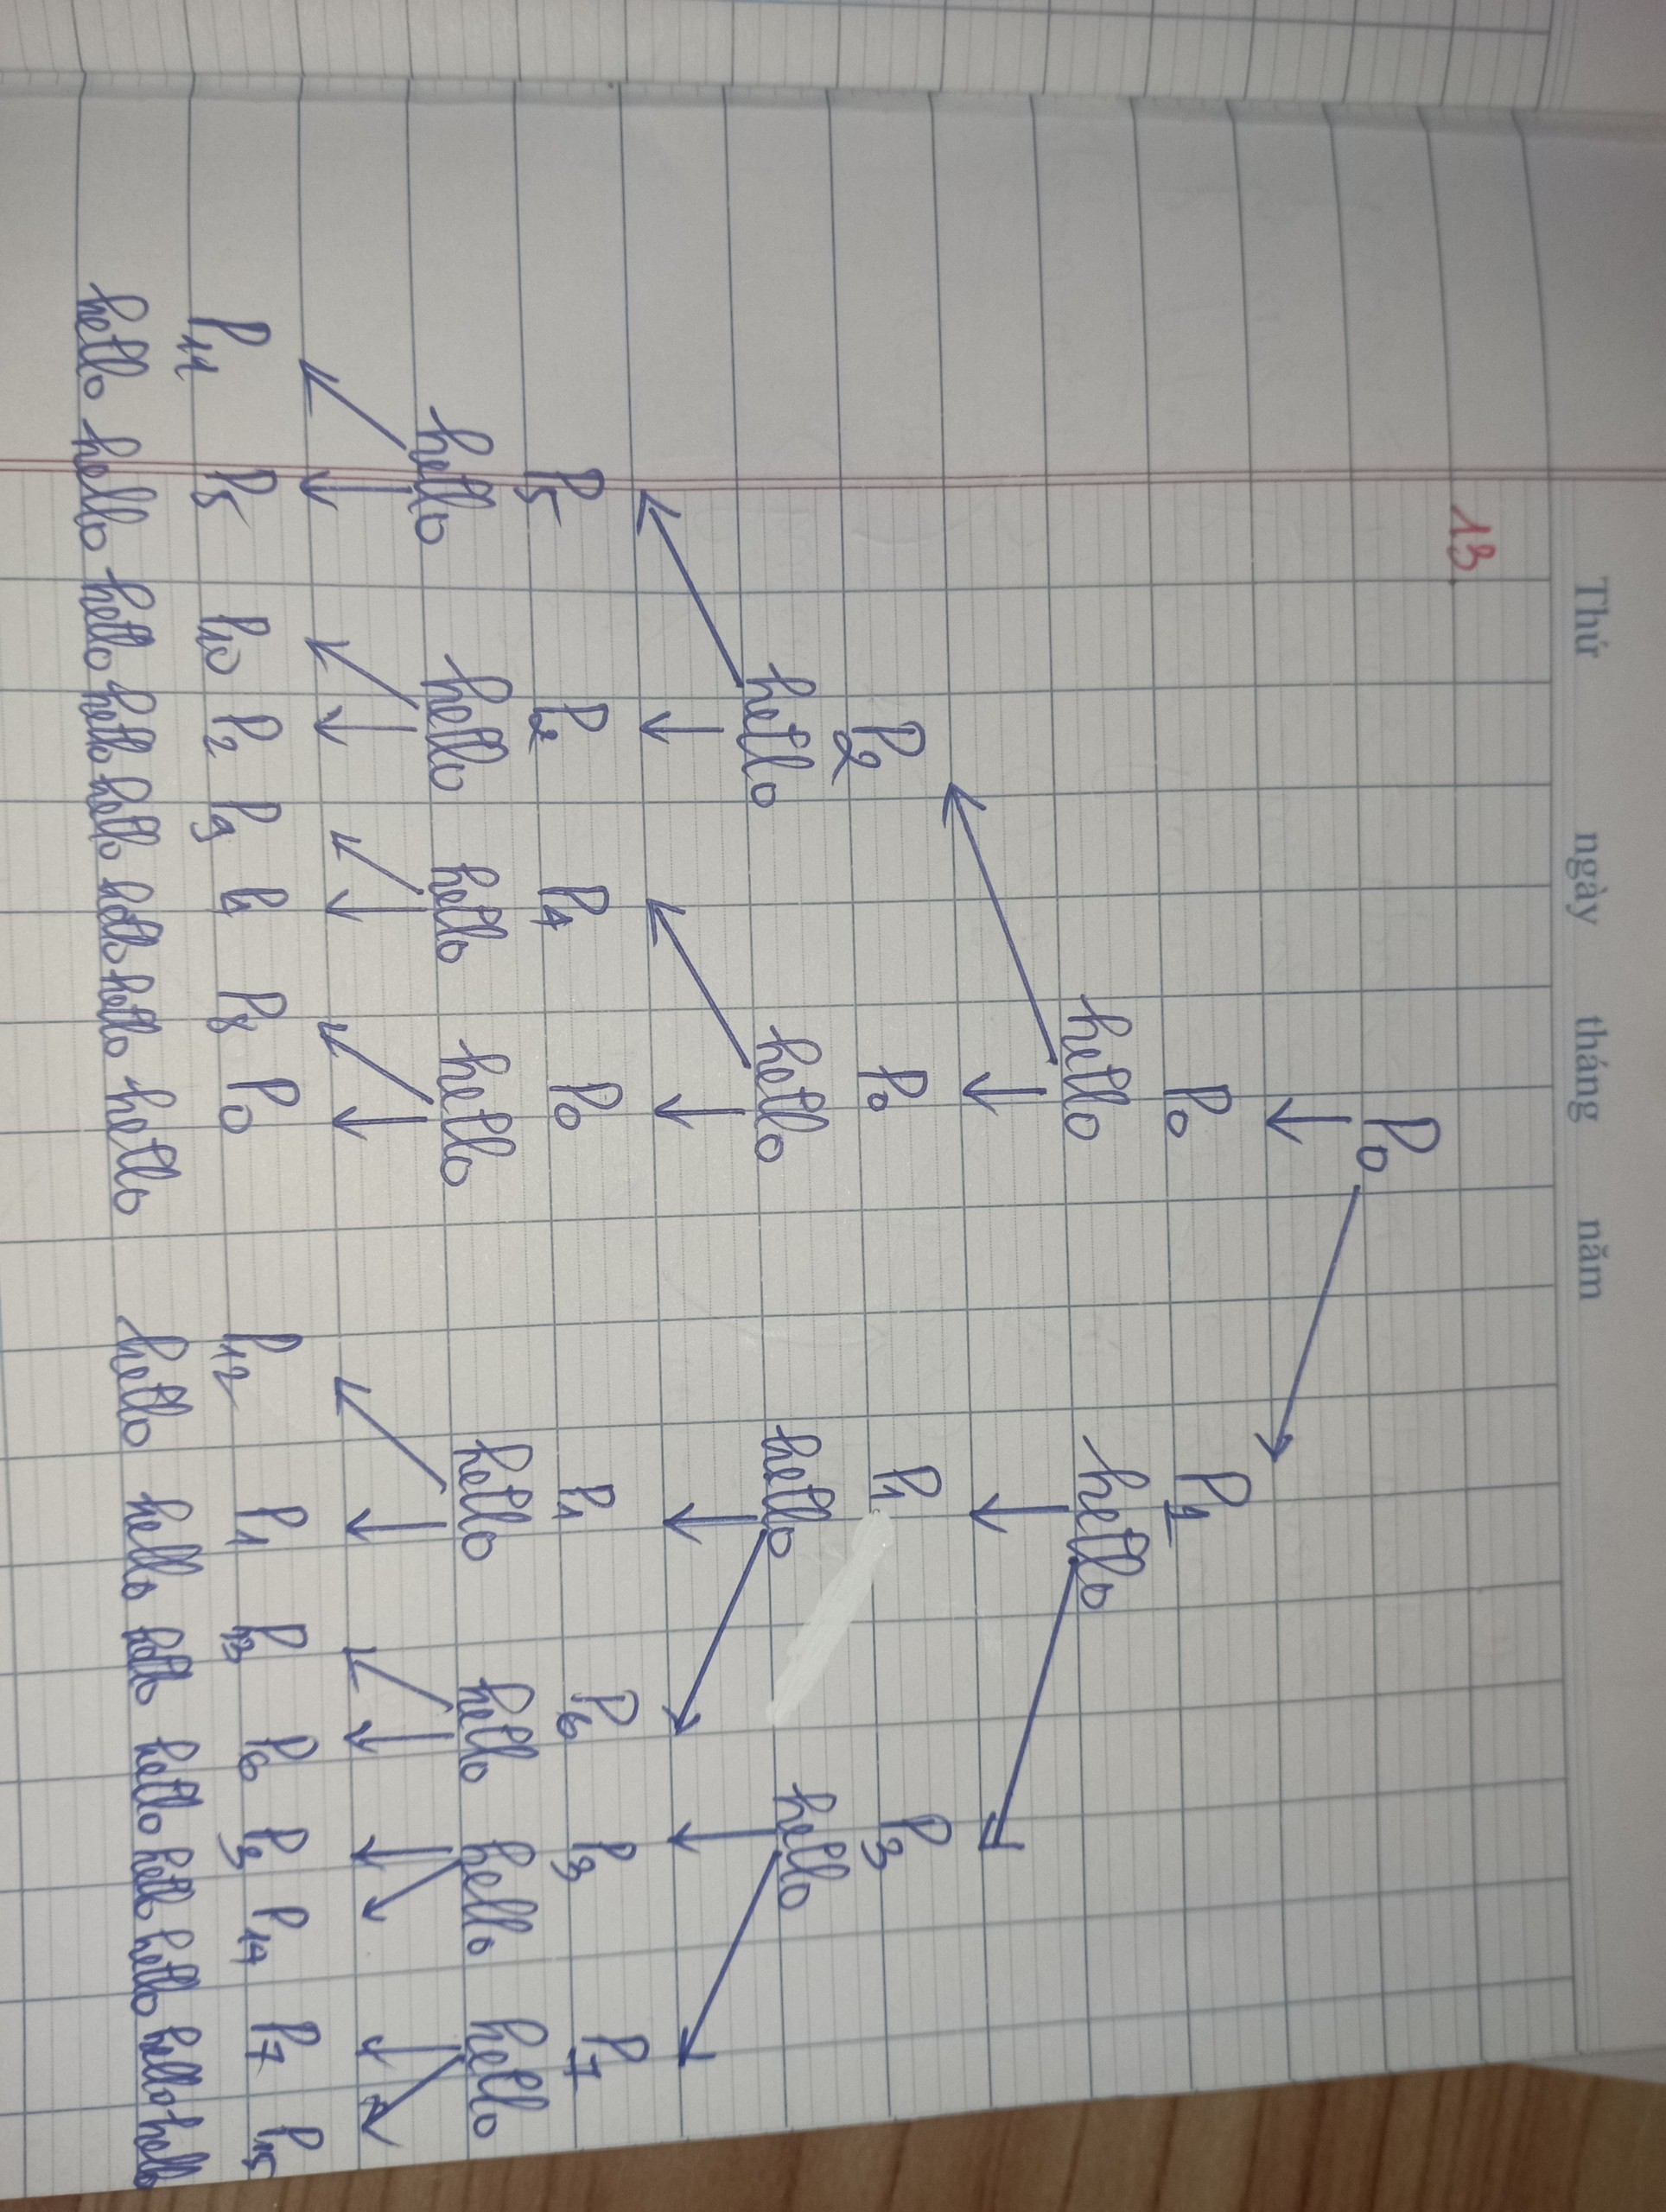 Thứ ngày tháng năm
13
P0
P0 P1
hello hello
P2 P0 P1 P3
hello hello hello hello
P5 P2 P4 P0 P1 P6 P3 P7
hello hello hello hello hello hello hello hello
P11 P5 P10 P2 P9 P4 P8 P0 P12 P1 P13 P6 P3 P14 P7 P15
hello hello hello hello hello hello hello hello hello hello hello hello hello hello hello hello